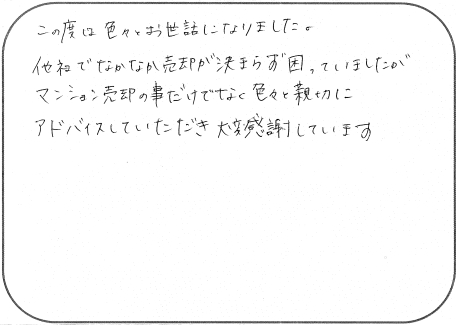 この度は色々とお世話になりました。
他社でなかなか売却が決まらず困っていましたが
マンション売却の事だけでなく色々と親切に
アドバイスしていただき大変感謝しています